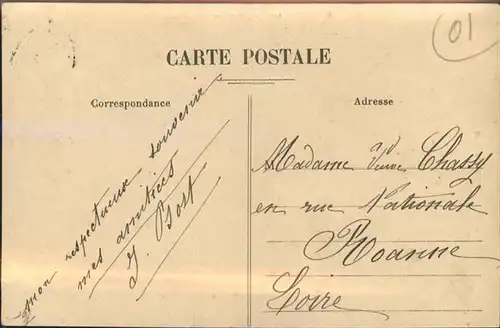 01
CARTE POSTALE
Correspondance
Adresse
mon respectueux souvenir
mes amitiées
J. Bost
Madame Veuve Chassy
en rue Nationale
Roanne
Loire